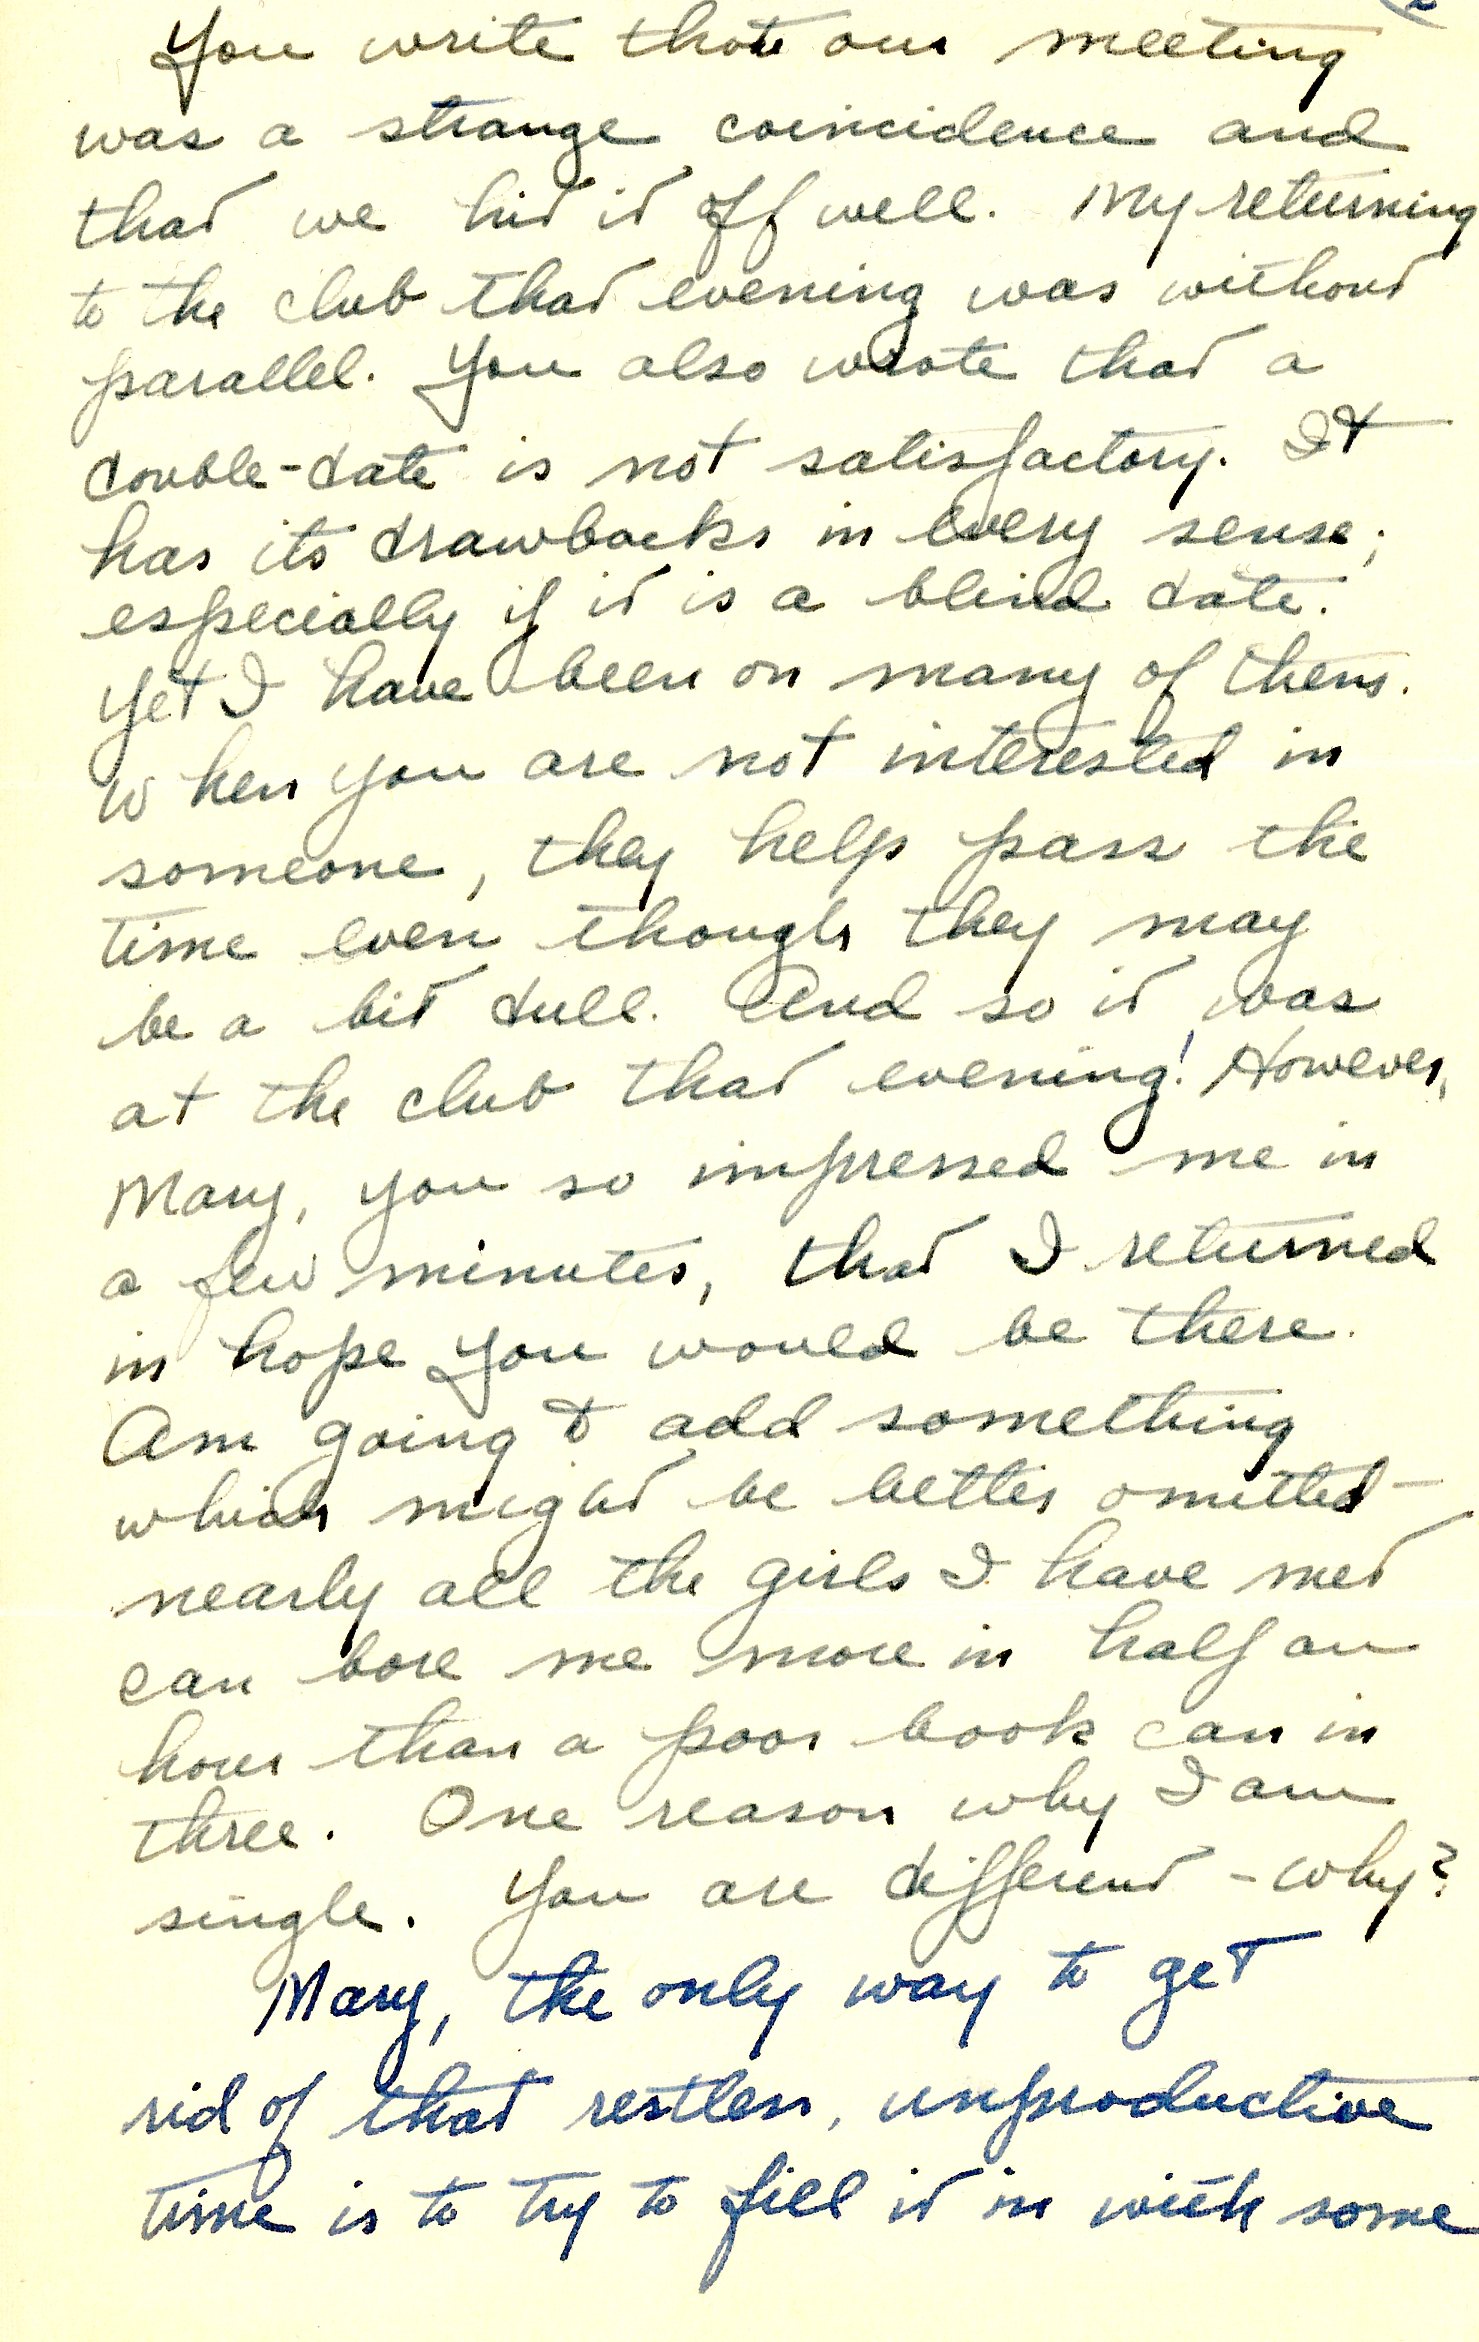 You write that our meeting
was a strange coincidence and
that we hit it off well. My returning
to the club that evening was without
parallel. You also wrote that a
double-date is not satisfactory. It
has its drawbacks in every sense;
especially if it is a blind date.
Yet I have been on many of them.
When you are not interested in
someone, they help pass the
time even though they may
be a bit dull. And so it was
at the club that evening! However,
Mary, you so impressed me in
a few minutes, that I returned
in hope you would be there.
Am going to add something
which might be better omitted -
nearly all the girls I have met
can bore me more in half an
hour than a poor book can in
three. One reason why I am
single. You are different - why?
Mary, the only way to get
rid of that restless, unproductive
time is to try to fill it in with some